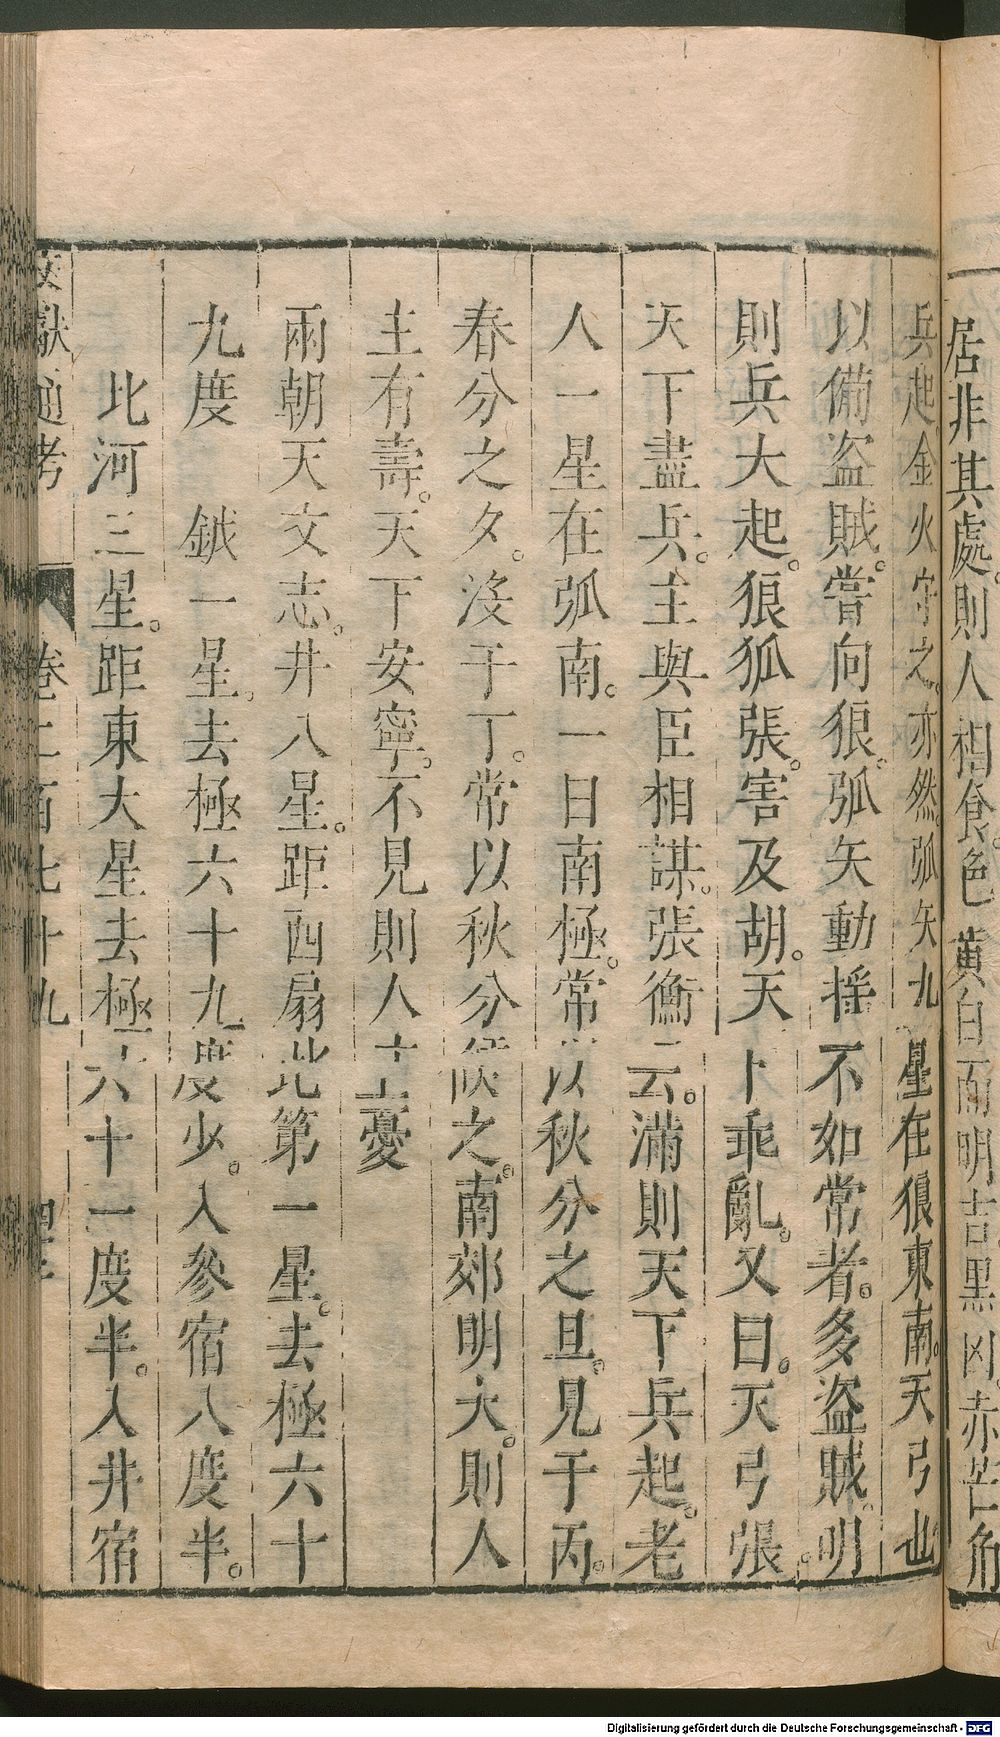 居非其處。則人相食。色黃白而明吉。黑凶。赤芒角
兵起金火守之。亦然。弧矢九星在狼東南。天弓也
以備盜賊。嘗向狼。弧矢動揺不如常者。多盜賊。明
則兵大起。狼狐張。害及胡。天下乖亂。又曰。天弓張。
天下盡兵。主與臣相謀。張衡云。滿則天下兵起。老
人一星在弧南。一曰南極。常以秋分之旦。見于丙。
春分之夕。沒于丁。常以秋分候之。南郊明大。則人
主有壽。天下安寧。不見則人主憂
兩朝天文志。井八星。距西扇北第一星。去極六十
九度 鉞一星。去極六十九度少。入參宿八度半。
北河三星。距東大星去極六十一度半。入井宿
文獻通考 卷二百七十九